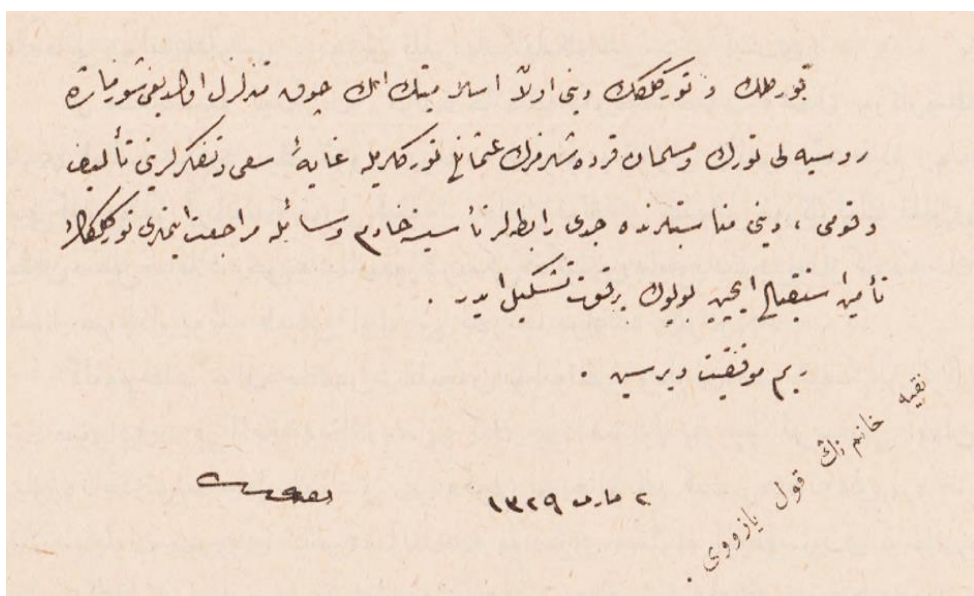 تورکلك و تورکلکك دینی اولاً اسلامیتك اڭ چوق متزلزل اولدیغی شو زمانده
روسیه لی تورك و مسلمان قرده شلرمزك عثمانلی تورکلریله غایهٔ سعی و تفکرلری تألیف
و قومی ، دینی مناسبتلرنده جدی رابطه لر تأسیسنه خادم وسائله مراجعت ایتمه لری تورکلکك
تأمین استقبالی ایچین بویوك بر قوت تشکیل ایدر .
ربم موفقیت ویرسین .
٢ مارت ١٣٢٩
نقیه
نقیه خانم نڭ قول یازووی .